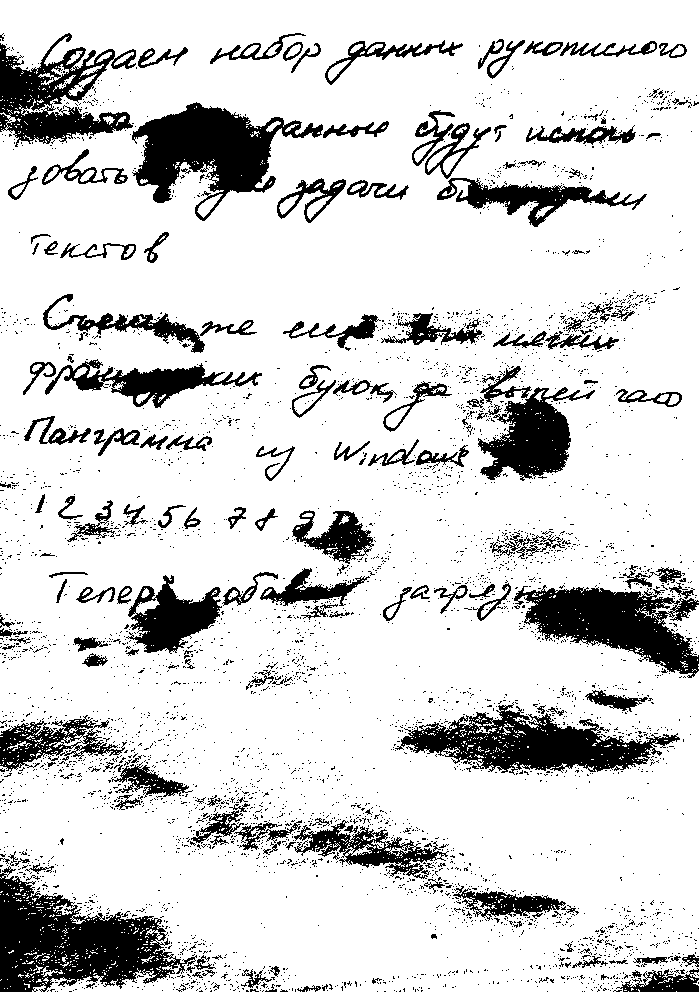 Создаем набор данных рукописного
данные будут исполь-
зоваться для задачи
текстов
Съешь же ещё этих мягких
французских булок, да выпей чаю
Панграмма из Windows
1 2 3 4 5 6 7 8 9
Теперь добавим